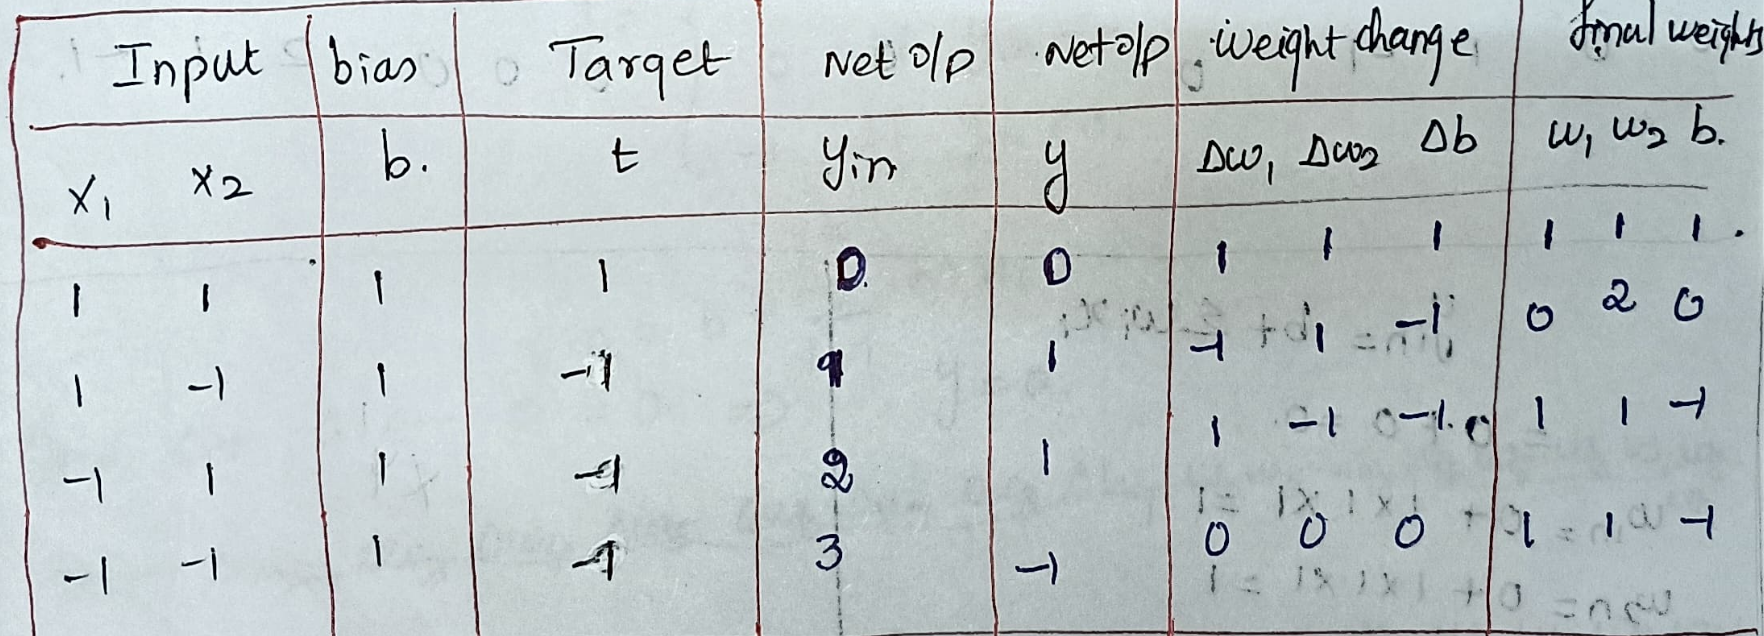 Input bias Target Net o/p Net o/p weight change final weights
x1 x2 b. t yin y Δw1 Δw2 Δb w1 w2 b.
1 1 1 1 0 0 1 1 1 1 1 1
1 -1 1 -1 1 1 -1 1 -1 0 2 0
-1 1 1 -1 2 1 1 -1 -1 1 1 -1
-1 -1 1 -1 3 -1 0 0 0 1 1 -1